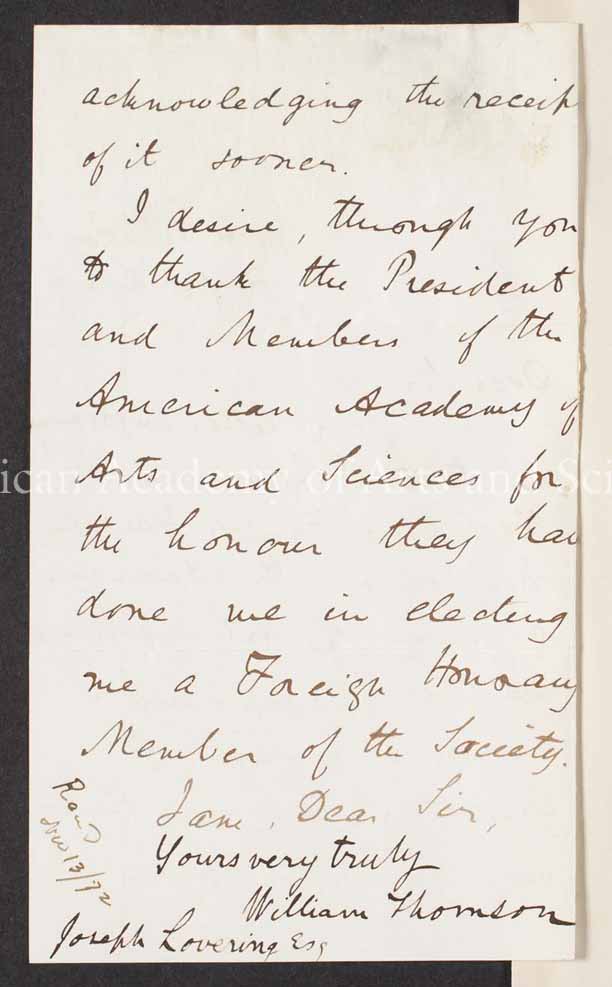 acknowledging the receip
of it sooner.
I desire, through you
to thank the President
and Members of the
American Academy of
Arts and Sciences for
the honour they have
done me in electing
me a Foreign Honorary
Member of the Society.
I am, Dear Sir,
Yours very truly
William Thomson
Joseph Lovering Esq
Recd
Nov 13/72
ican Academy of Arts and Sci